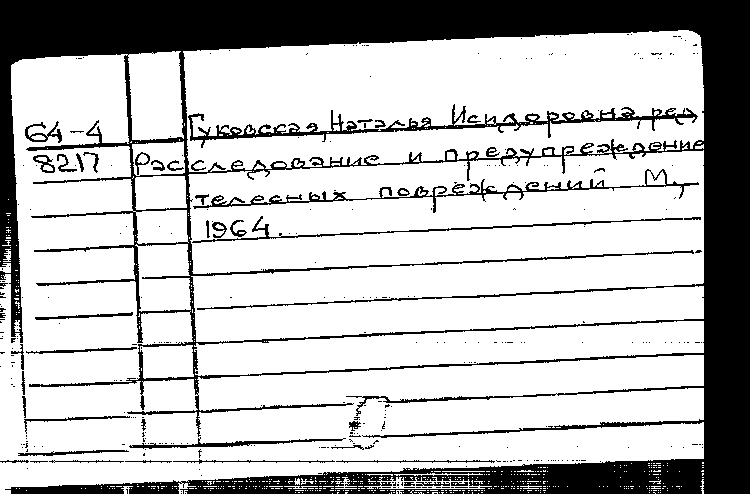 64-4 Гуковская, Наталья Исидоровна, ред.
8217 Расследование и предупреждение
телесных повреждений М.,
1964.